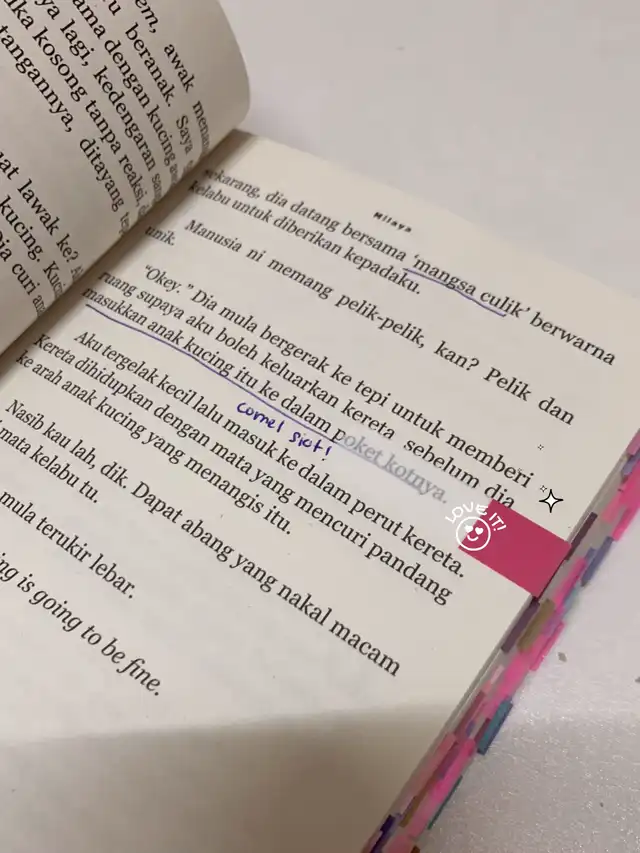 awak
beranak. Saya
dengan kucing
lagi, kedengaran
kosong tanpa reaksi,
tangannya, ditayang
lawak ke?
kucing.
Dia curi
Hilaya
sekarang, dia datang bersama ‘mangsa culik’ berwarna
kelabu untuk diberikan kepadaku.
Manusia ni memang pelik-pelik, kan? Pelik dan
unik.
“Okey.” Dia mula bergerak ke tepi untuk memberi
ruang supaya aku boleh keluarkan kereta sebelum dia
masukkan anak kucing itu ke dalam poket kotnya.
comel siot!
LOVE IT!
Aku tergelak kecil lalu masuk ke dalam perut kereta.
Kereta dihidupkan dengan mata yang mencuri pandang
ke arah anak kucing yang menangis itu.
Nasib kau lah, dik. Dapat abang yang nakal macam
mata kelabu tu.
mula terukir lebar.
is going to be fine.